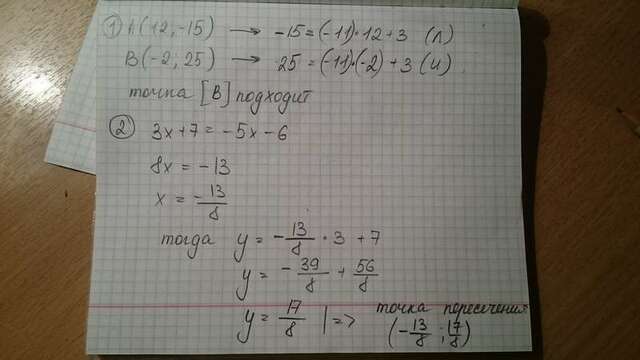 ① A(12; -15) → -15 = (-11)·12+3 (Л)
B(-2; 25) → 25 = (-11)·(-2)+3 (И)
точка [B] подходит
② 3x+7 = -5x-6
8x = -13
x = -13/8
тогда y = -13/8 · 3 +7
y = -39/8 + 56/8
y = 17/8 | => точка пересечения
(-13/8 ; 17/8)